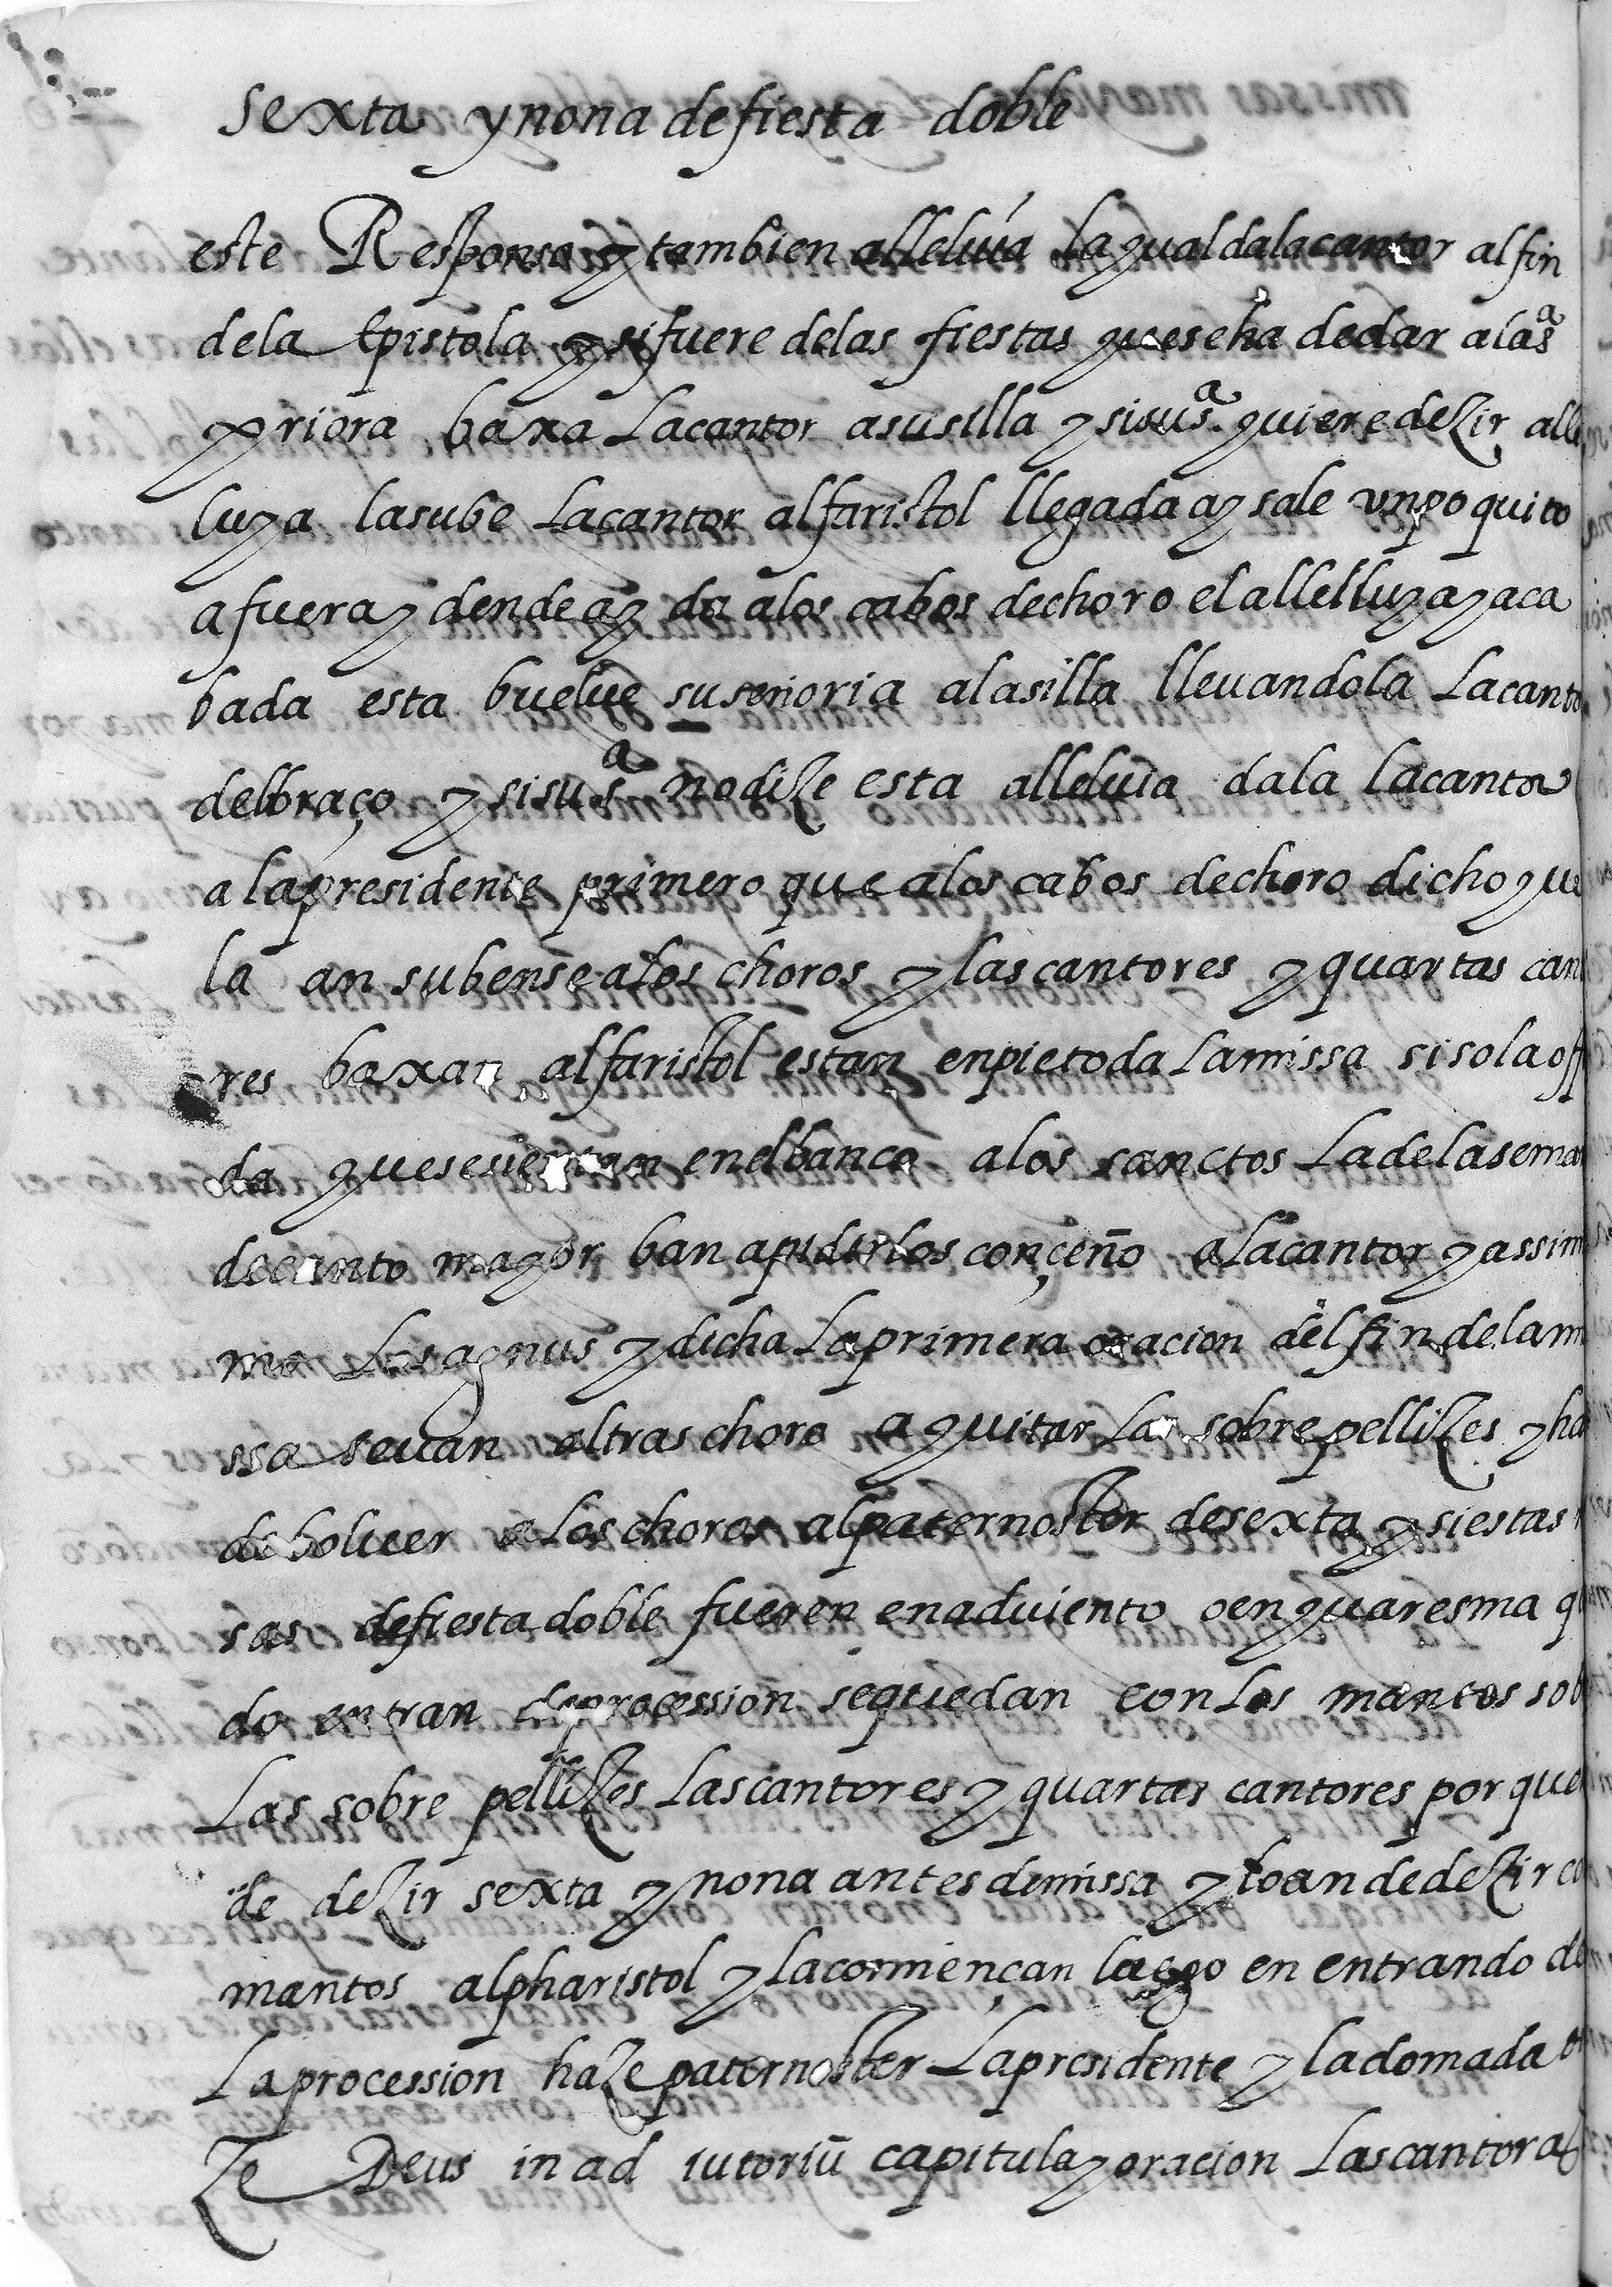 sexta y nona de fiesta doble
este Responso y tambien alleluia la qual da la cantor al fin
de la Epistola y si fuere de las fiestas que se ha de dar a la sª
priora baxa la cantor a su silla y si su sª quiere dezir alle
luya la sube la cantor al faristol llegada ay sale un poquito
a fuera y dende ay da a los cabos de choro el allelluya y aca
bada esta buelue su señoria a la silla lleuandola la canto
del braço y si su sª no dize esta alleluia da la la cantor
a la presidente primero que a los cabos de choro dicho que
la an subense a los choros y las cantores y quartas can
res baxan al faristol estan en pie toda la missa si so la off
da que se sientan en el banco a los sanctos la de la sema
de canto mayor ban a pedirlos con çeño a la cantor y assim
mo los agnus y dicha la primera oracion del fin de la mi
ssa se uan al tras choro a quitar las sobre pellizes y ha
de boluer a los choros al paternoster de sexta y si estas
sas de fiesta doble fueren en aduiento o en quaresma q
do entran de procession se quedan con los mantos sob
las sobre pellizes las cantores y quartas cantores por que
de dezir sexta y nona antes de missa y lo an de dezir co
mantos al pharistol y la comiençan luego en entrando de
la procession haze paternoster la presidente y la domada
ze Deus in ad iutoriū capitula y oracion las cantoras